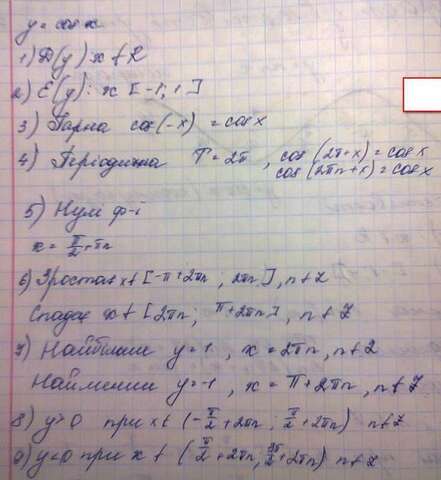 y = cos x
1) D(y) x ∈ R
2) E(y): x [-1; 1]
3) Парна cos(-x) = cos x
4) Періодична T = 2π, cos(2π+x) = cos x
cos(2πn+x) = cos x
5) Нулі ф-ї
x = π/2 + πn
6) Зростає x∈ [-π+2πn; 2πn], n∈Z
Спадає x∈ [2πn; π+2πn], n∈Z
7) Найбільше y=1, x=2πn, n∈Z
Найменше y=-1, x=π+2πn, n∈Z
8) y>0 при x∈ (-π/2+2πn; π/2+2πn) n∈Z
9) y<0 при x∈ (π/2+2πn; 3π/2+2πn) n∈Z